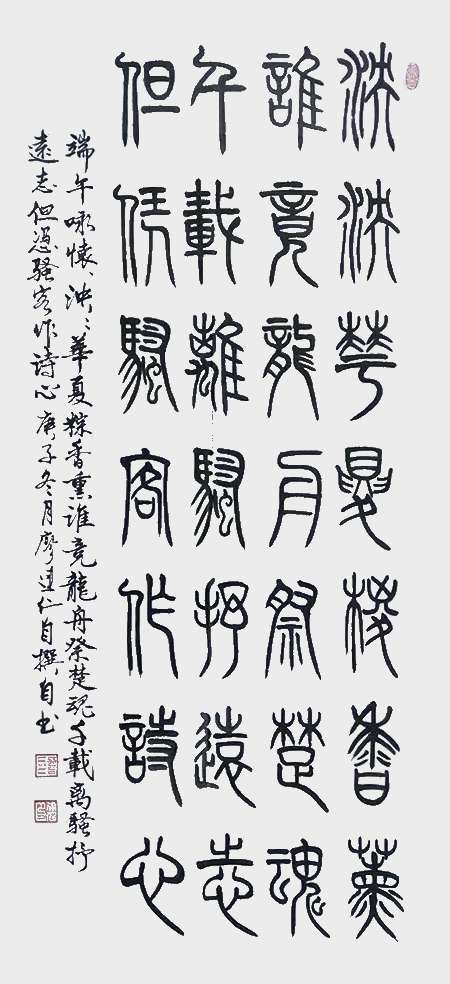 泱泱華夏糉香薰
誰竟龍舟祭楚魂
千載離騷抒遠志
但凭騷客作詩心
端午咏懷、泱〻華夏粽香熏誰竞龍舟祭楚魂千載离騷抒
遠志但憑騷客作詩心 庚子冬月廖仁自撰自书